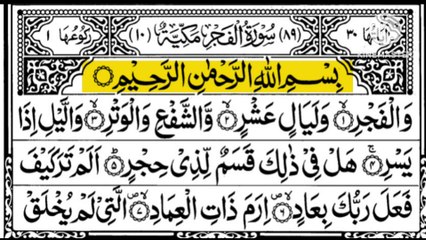 اٰیَاتُهَا ٣٠ (٨٩) سُوْرَةُ الْفَجْرِ مَكِّيَّةٌ (١٠) رُكُوْعُهَا ١
بِسْمِ اللّٰهِ الرَّحْمٰنِ الرَّحِيْمِ
وَالْفَجْرِ ۙ﴿١﴾ وَلَيَالٍ عَشْرٍ ۙ﴿٢﴾ وَّالشَّفْعِ وَالْوَتْرِ ۙ﴿٣﴾ وَالَّيْلِ اِذَا
يَسْرِ ۚ﴿٤﴾ هَلْ فِيْ ذٰلِكَ قَسَمٌ لِّذِيْ حِجْرٍ ؕ﴿٥﴾ اَلَمْ تَرَ كَيْفَ
فَعَلَ رَبُّكَ بِعَادٍ ۙ﴿٦﴾ اِرَمَ ذَاتِ الْعِمَادِ ۙ﴿٧﴾ الَّتِيْ لَمْ يُخْلَقْ